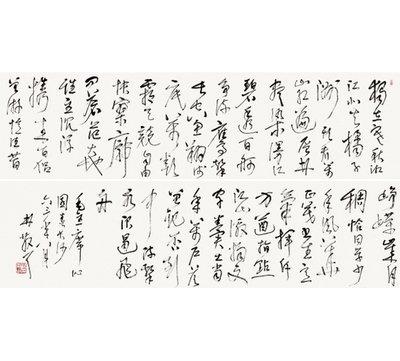 独立寒秋湘
江北去橘子
洲头看万
山红遍层林
尽染漫江
碧透百舸
争流鹰击
长空鱼翔浅
底万类
霜天竞自由
怅寥廓
问苍茫大地
谁主沉浮
携来百侣
曾游忆往昔
峥嵘岁月
稠恰同学少
年风华
正茂书生意
气挥斥
方遒指点
江山激扬文
字粪土当
年万户侯
曾记否到
中流击
水浪遏飞
舟
毛主席沁
园春长沙
六三年八月
林散耳